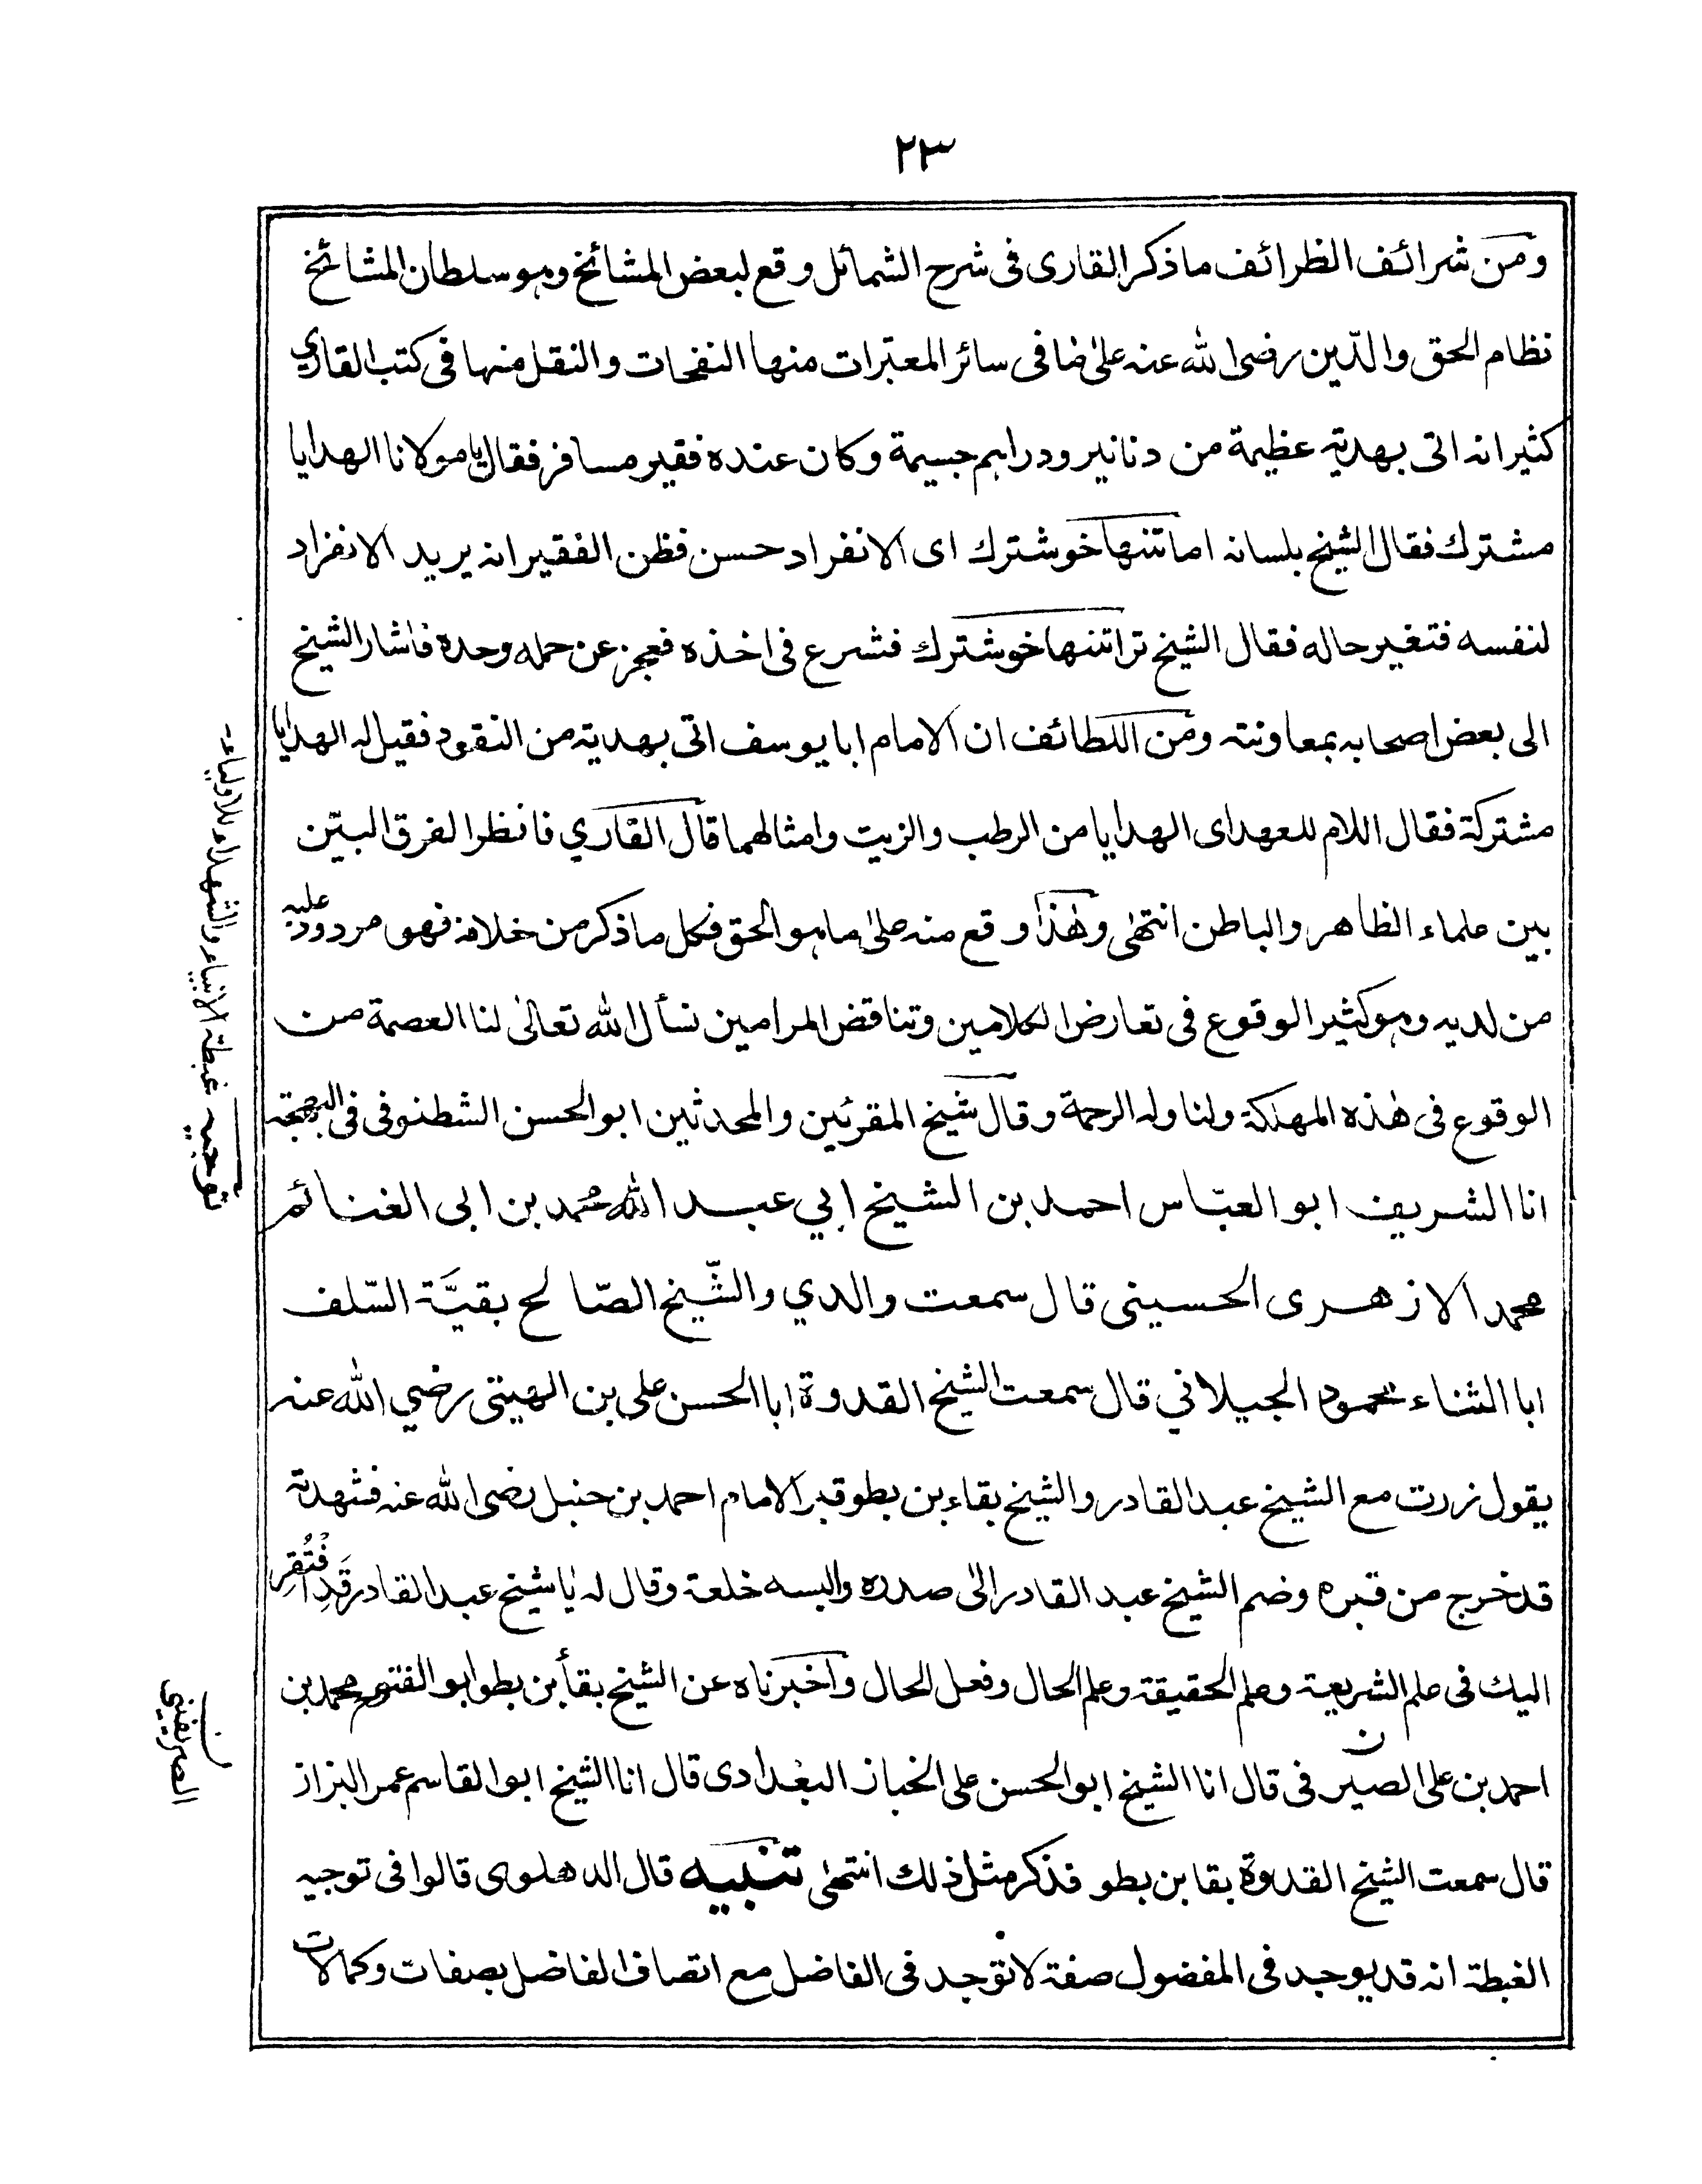 ٢٣
ومن شرائف الظرائف ما ذكر القارى فى شرح الشمائل وقع لبعض المشائخ وهو سلطان المشائخ
نظام الحق والدّين رضى الله عنه على ما فى سائر المعتبرات منها النفحات والنقل منها فى كتب القاري
كثير انه اتى بهدية عظيمة من دنانير ودراهم جسيمة وكان عنده فقير مسافر فقال يا مولانا الهدايا
مشترك فقال الشيخ بلسانه اما تنها خوشترك اى الانفراد حسن فظن الفقير انه يريد الانفراد
لنفسه فتغير حاله فقال الشيخ ترا تنها خوشترك فشرع فى اخذه فعجز عن حمله وحده فاشار الشيخ
الى بعض اصحابه بمعاونته ومن اللطائف ان الامام ابا يوسف اتى بهدية من النقود فقيل له الهدايا
مشتركة فقال اللام للعهد اى الهدايا من الرطب والزيت وامثالهما قال القاري فانظر الفرق البيّن
بين علماء الظاهر والباطن انتهٰى وهٰذا وقع منه علىٰ ما هو الحق فكل ما ذكر من خلافه فهو مردود عليه
من لديه وهو كثير الوقوع فى تعارض الكلامين وتناقض المرامين نسأل الله تعالىٰ لنا العصمة من
الوقوع فى هٰذه المهلكة ولنا وله الرحمة وقال شيخ المقرئين والمحدثين ابو الحسن الشطنوفى فى البهجة
انا الشريف ابو العبّاس احمد بن الشيخ ابي عبد الله محمد بن ابى الغنائم
محمد الازهرى الحسينى قال سمعت والدي والشّيخ الصّالح بقيَّة السّلف
ابا الثناء محمود الجيلاني قال سمعت الشيخ القدوة ابا الحسن على بن الهيتى رضي الله عنه
يقول زرت مع الشيخ عبد القادر والشيخ بقاء بن بطو قبر الامام احمد بن حنبل رضى الله عنه فشهدته
قد خرج من قبره وضم الشيخ عبد القادر الىٰ صدره والبسه خلعة وقال له يا شيخ عبد القادر قَدِ افْتُقِر
اليك فى علم الشريعة وعلم الحقيقة وعلم الحال وفعل الحال واخبرناه عن الشيخ بقأ بن بطو ابو الفتح محمد بن
احمد بن على الصيرفى ن قال انا الشيخ ابو الحسن على الخباز البغدادى قال انا الشيخ ابو القاسم عمر البزاز
قال سمعت الشيخ القدوة بقا بن بطو فذكر مثل ذلك انتهٰى تنبيه قال الدهلوى قالوا فى توجيه
الغبطة انه قد يوجد فى المفضول صفة لا توجد فى الفاضل مع اتصاف الفاضل بصفات وكمالات
توجيه غبطة الانبياء والشهداء للاولياء
الصريفينى